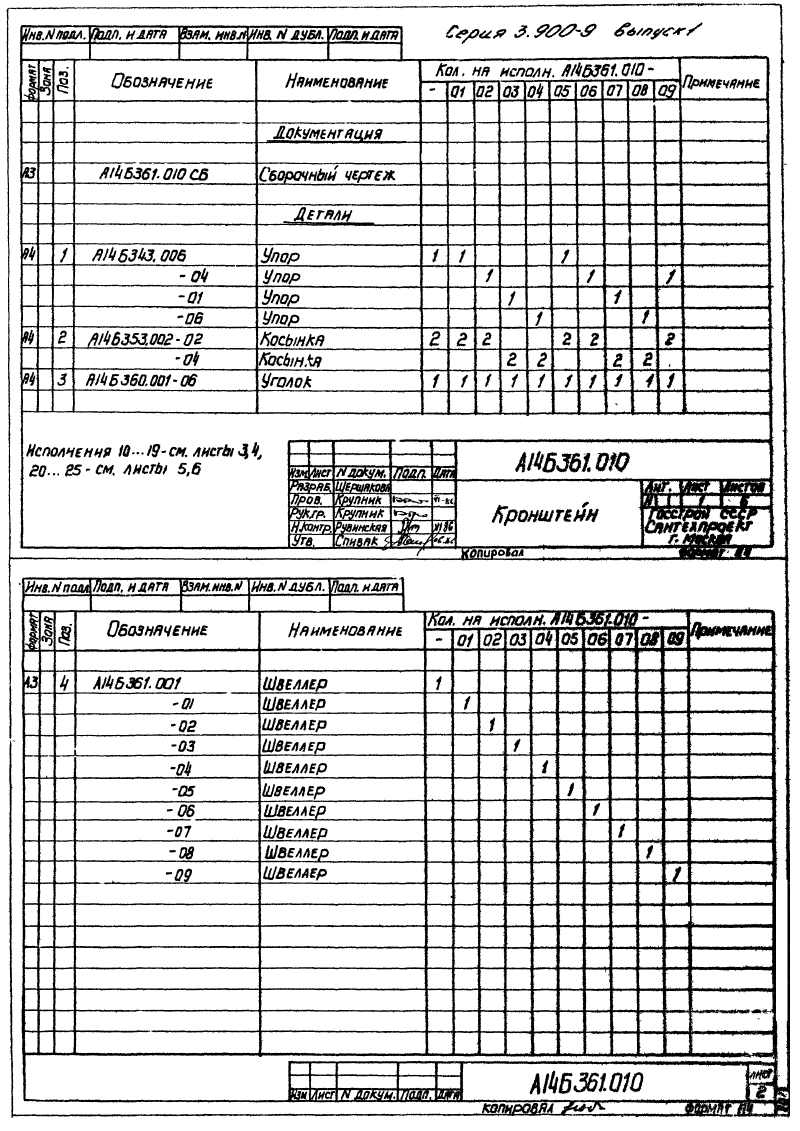 Серия 3.900-9 Выпуск 1
Инв. N подл. Подп. и дата Взам. инв. N Инв. N дубл. Подп. и дата
Формат Зона Поз. Обозначение Наименование Кол. на исполн. А14Б361.010 - Примечание
- 01 02 03 04 05 06 07 08 09
Документация
А3 А14Б361.010 СБ Сборочный чертеж
Детали
А4 1 А14Б343.006 Упор 1 1 1
-04 Упор 1 1 1
-01 Упор 1 1
-06 Упор 1 1
А4 2 А14Б353.002-02 Косынка 2 2 2 2 2 2
-04 Косынка 2 2 2 2
А4 3 А14Б360.001-06 Уголок 1 1 1 1 1 1 1 1 1 1
Исполнения 10...19 - см. листы 3,4,
20...25 - см. листы 5,6
Изм Лист N докум. Подп. Дата
Разраб. Шершакова
Пров. Крупник
Рук.гр. Крупник
Н.контр. Рувинская XI 86
Утв. Спивак
А14Б361.010
Кронштейн
Лит. Лист Листов
И 1 6
Госстрой СССР
Сантехпроект
г. Москва
Копировал Формат А4
Инв. N подл. Подп. и дата Взам. инв. N Инв. N дубл. Подп. и дата
Формат Зона Поз. Обозначение Наименование Кол. на исполн. А14Б361.010 - Примечание
- 01 02 03 04 05 06 07 08 09
А3 4 А14Б361.001 Швеллер 1
-01 Швеллер 1
-02 Швеллер 1
-03 Швеллер 1
-04 Швеллер 1
-05 Швеллер 1
-06 Швеллер 1
-07 Швеллер 1
-08 Швеллер 1
-09 Швеллер 1
Изм Лист N докум. Подп. Дата
А14Б361.010
Лист
2
Копировал Формат А4